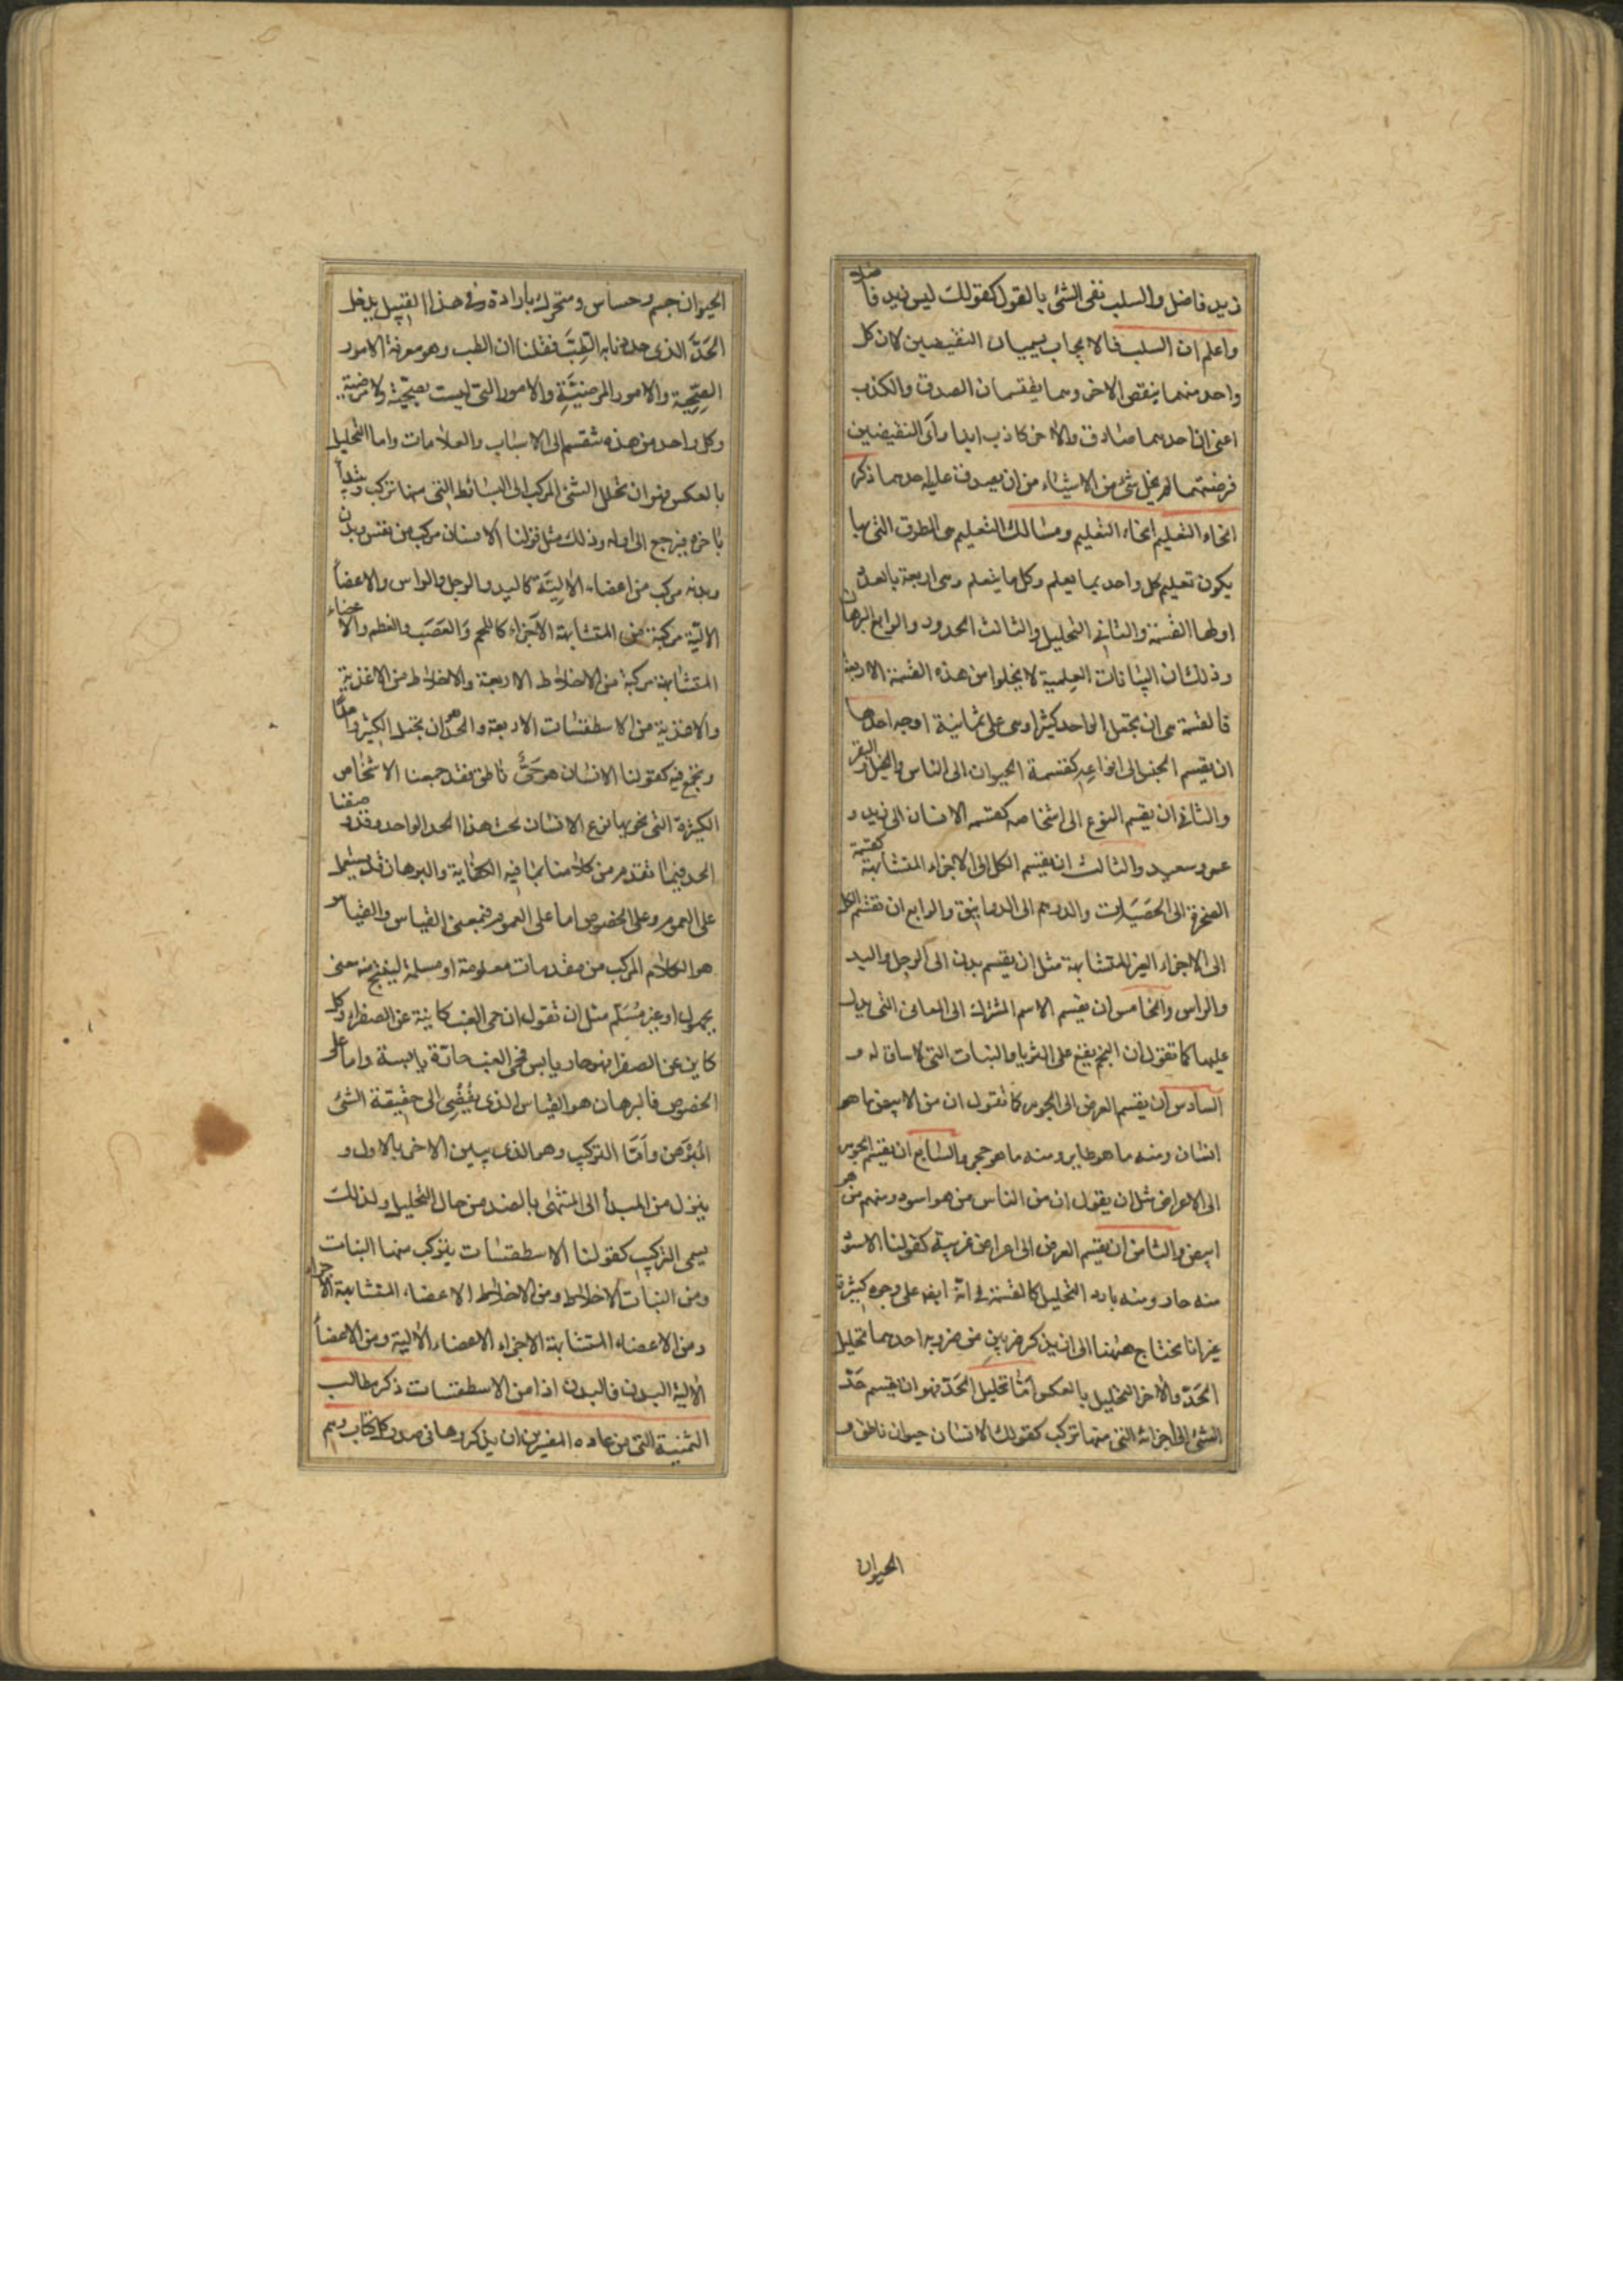 زيد فاضل والسلب نفى الشئ بالقول كقولك ليس زيد فاضلا
واعلم ان السلب والايجاب يسميان النقيضين لان كل
واحد منهما ينقض الاخر وهما يقتسمان الصدق والكذب
اعنى ان احدهما صادق والاخر كاذب ابدا وأى النقيضين
فرضتهما لم يخل شئ من الاشياء من ان يصدق عليه احدهما ذكر
انحاء التعليم انحاء التعليم ومسالك التعليم هى الطرق التى بها
يكون تعليم كل واحد بما يعلم وكل ما يتعلم وهى اربعة بالعدد
اولها القسمة والثانى التحليل والثالث الحدود والرابع البرهان
وذلك ان البيانات العلمية لا يخلوا من هذه القسمة الاربعة
فالقسمة هى ان يجعل الواحد كثيرا وهى على ثمانية اوجه احدها
ان يقسم الجنس الى انواعه كقسمة الحيوان الى الناس والخيل والبقر
والثانى ان يقسم النوع الى اشخاصه كقسمه الانسان الى زيد و
عمرو سعيد والثالث ان يقسم الكل الى الاجزاء المتشابهة كقسمة
الصخرة الى الحصيات والدرهم الى الدوانيق والرابع ان تقسم الكل
الى الاجزاء الغير المتشابهة مثل ان يقسم بدن الى الرجل واليد
والراس والخامس ان يقسم الاسم المشترك الى المعانى التى يدل
عليها كما تقول ان النجم يقع على الثريا والنبات التى لا ساق له و
السادس ان يقسم العرض الى الجوهر كما تقول ان من الابيض ما هو
انسان ومنه ما هو طاير ومنه ما هو حجر والسابع ان يقسم الجوهر
الى الاعراض مثل ان يقول ان من الناس من هو اسود ومنهم من هو
ابيض والثامن ان يقسم العرض الى اعراض غريبة كقولنا الاسود
منه حار ومنه بارد التحليل كالقسمة فى انه ايضا على وجوه كثيرة
غير انا نحتاج ههنا الى ان نذكر ضربين من ضروبه احدهما تحليل
الحَدّ والاخر التحليل بالعكس امّا تحليل الحَدّ فهو ان يقسم حَدّ
الشئ الى اجزائه التى منها تركب كقولك الانسان حيوان ناطق و
الحيوان
الحيوان جسم وحساس ومتحرك بارادة وفى هذا القبيل يدخل
الحَدّ الذى حددنا به الطِبَّ فقلنا ان الطب وهو معرفة الامور
الصِحِّية والامور المرضيَّةِ والامور التى ليست بصحِّية ولا مرضية
وكل واحد من هذه تنقسم الى الاسباب والعلامات واما التحليل
بالعكس فهو ان نحلل الشئ المركب الى البسائط التى منها تركب ونبتدأ
باخره فيرجع الى اوله وذلك مثل قولنا الانسان مركب من نفس وبدن
وبدنه مركب من اعضاء الاليَّة كاليد والرجل والراس والاعضاء
الاليَّة مركبة من المتشابهة الاجزاء كاللحم والعَصَب والعظم والاعضاء
المتشابهة مركبة من الاخلاط الاربعة والاخلاط من الاغذية
والاغذية من الاسطقسات الاربعة والحد هو ان يجعل الكثير واحدًا
ونجمع فيه كقولنا الانسان هو حَىٌّ ناطق فقد جمعنا الاشخاص
الكثيرة التى نحويها نوع الانسان تحت هذا الحد الواحد وقد وصفنا
الحد فيما تقدم من كلامنا بما فيه الكفاية والبرهان قد يستعمل
على العموم وعلى الخصوص اما على العموم فبمعنى القياس والقياس
هو الكلام المركب من مقدمات معلومة او مسلمة لينتج منه معنى
مجهول او غير مُسَلّم مثل ان تقول ان حمى الغب كاينة عن الصفراء وكل
كاين عن الصفرا فهو حار يابس فحمى الغب حارّة يابسة واما على
الخصوص فالبرهان هو القياس الذى يُفْضِى الى حقيقة الشئ
المُبَرْهَن وأمَّا التركيب وهو الذى يبين الاخر بالاول و
ينزل من المبدأ الى المنتهى بالضد من حال التحليل ولذلك
يسمى التركيب كقولنا الاسطقسات يتركب منها النبات
ومن النبات الاخلاط ومن الاخلاط الاعضاء المتشابهة الاجزاء
ومن الاعضاء المتشابهة الاجزاء الاعضاء الالية ومن الاعضاء
الالية البدن فالبدن اذا من الاسطقسات ذكر مطالب
الثمنية التى من عاده المفسرين ان يذكروها فى صدر كل كتاب وهم